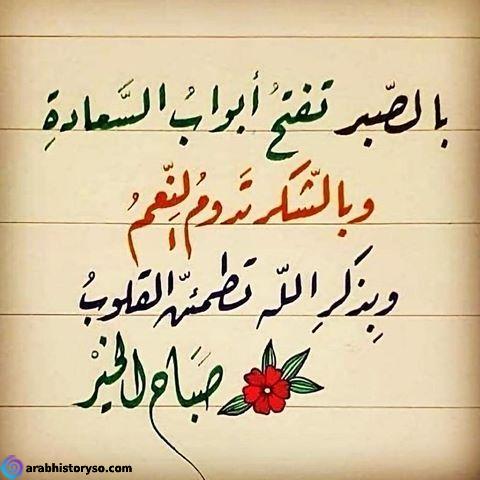 بالصّبر تفتحُ أبوابُ السَّعادةِ
وبالشّكر تَدومُ النِّعمُ
وبِذكرِ اللّه تطمئنّ القلوبُ
صَبَاح الخيْر
arabhistoryso.com